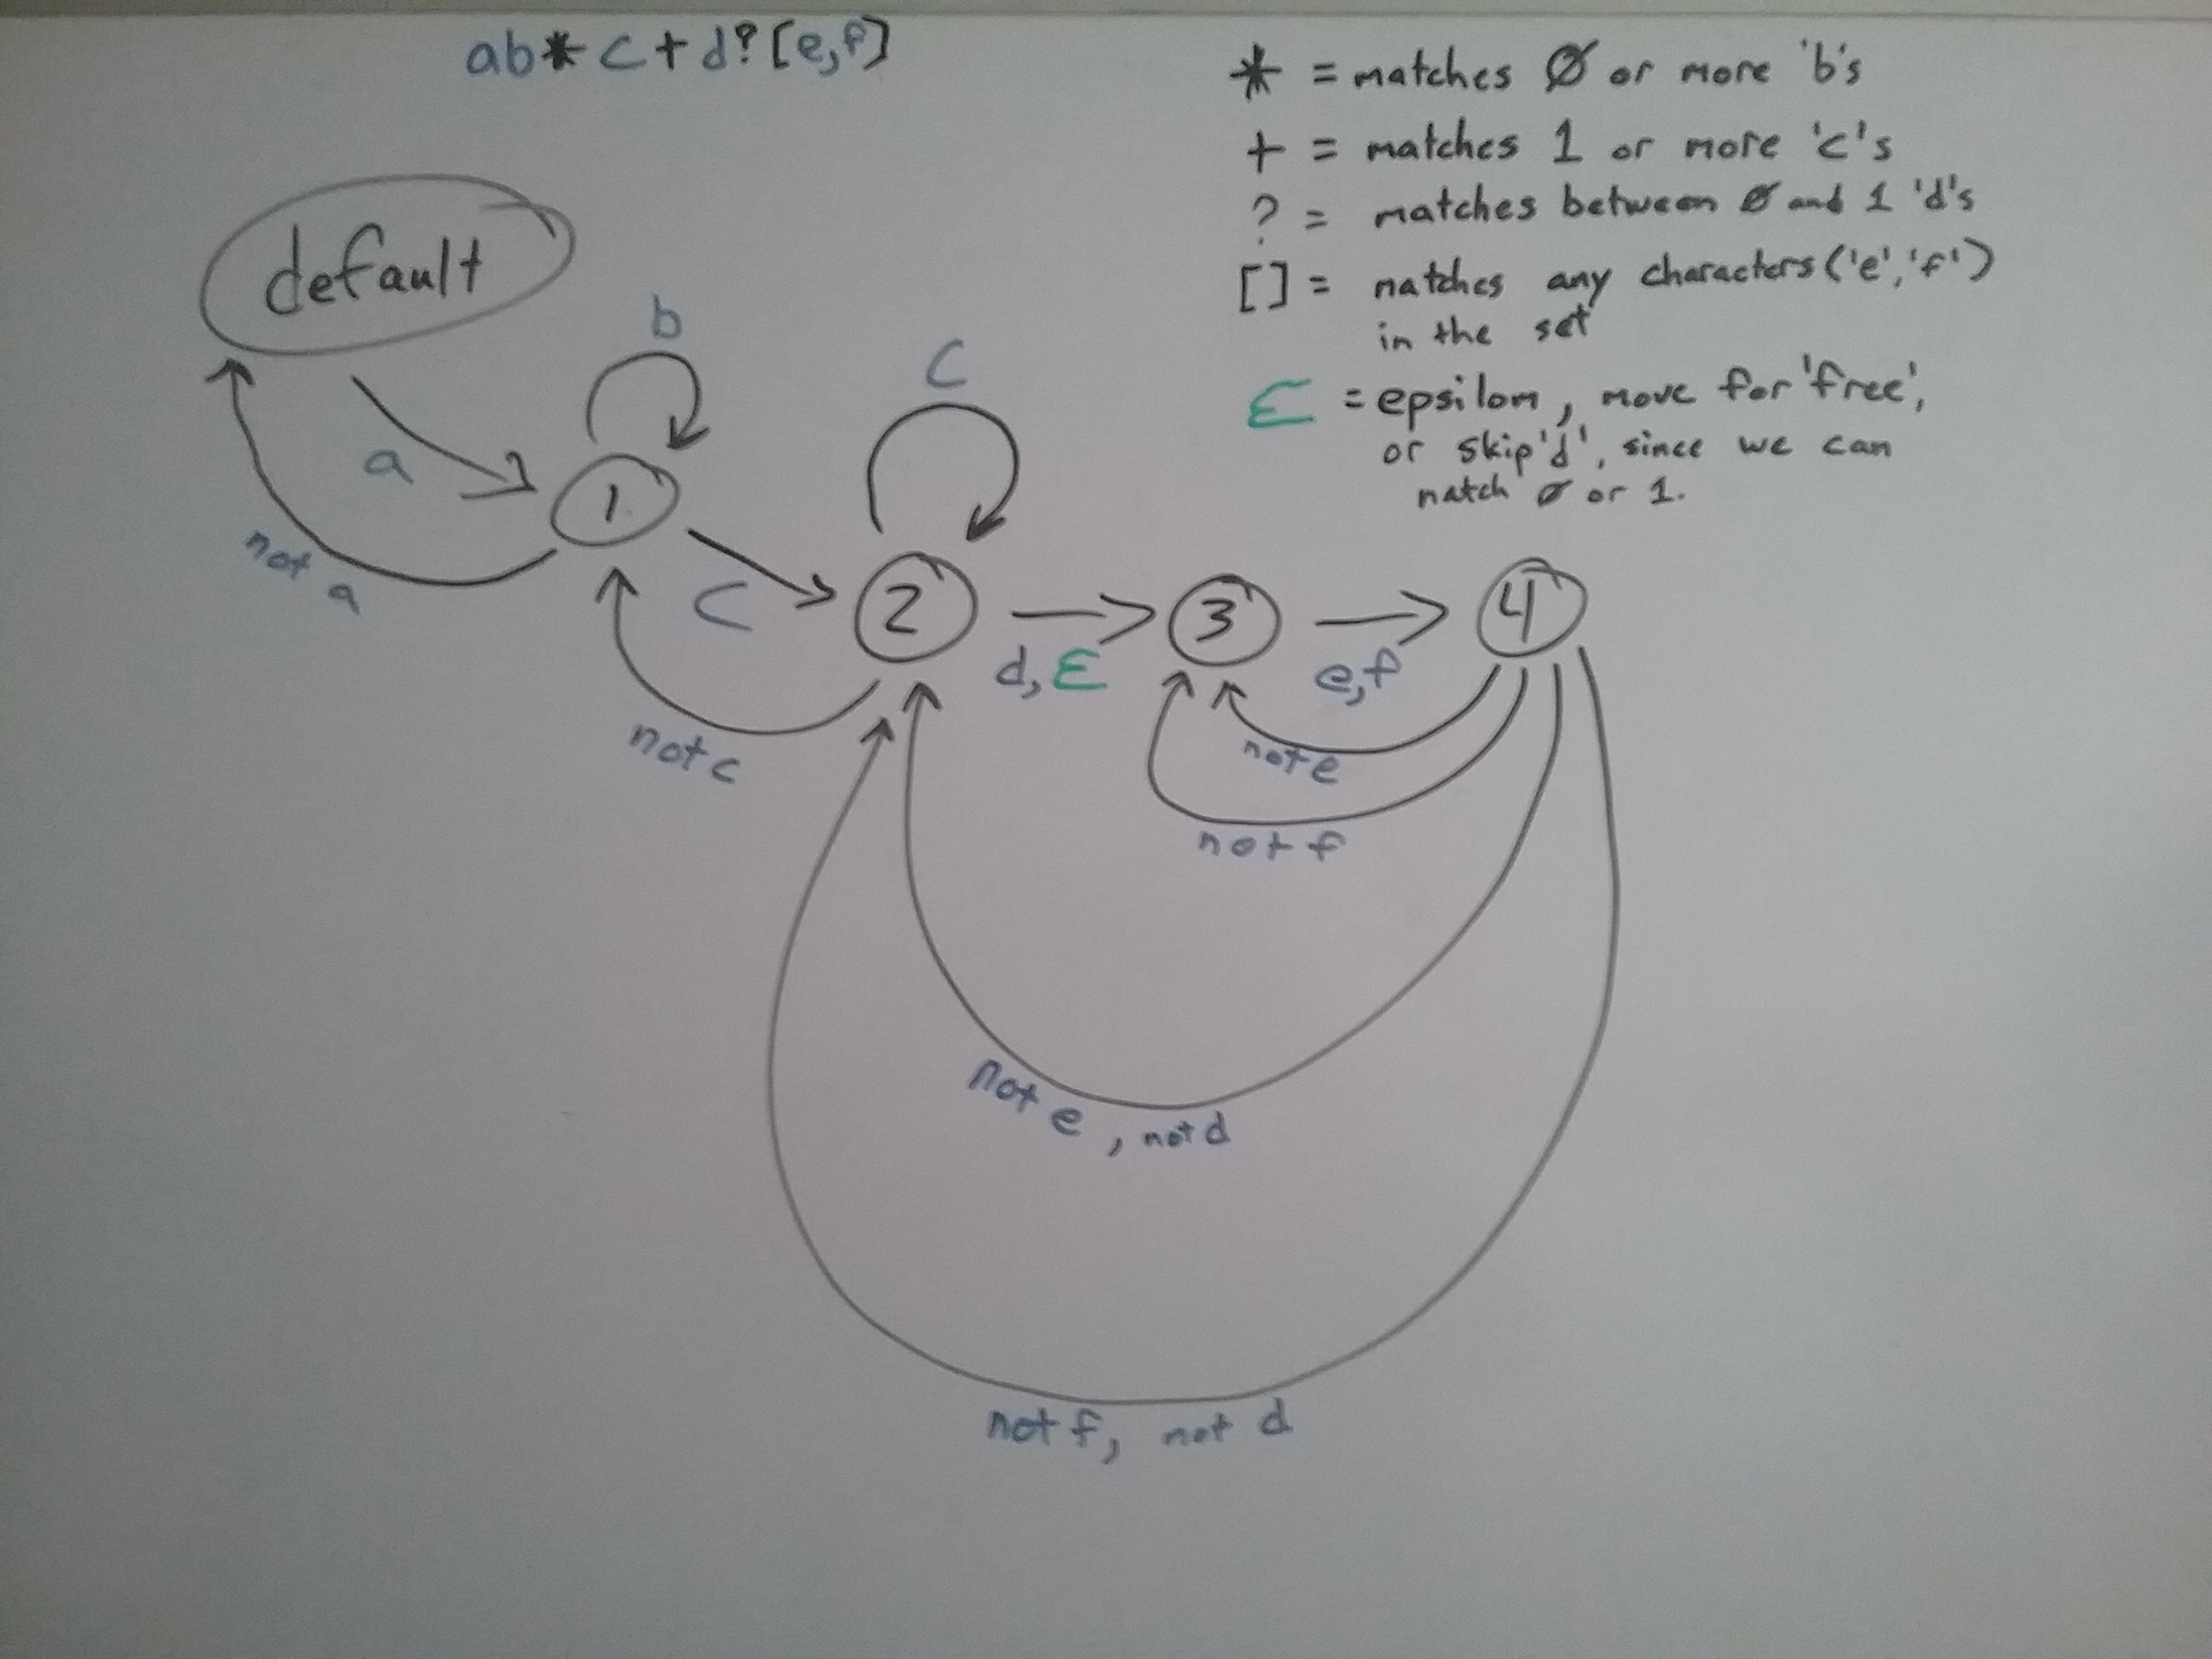 ab*c+d?[e,f]
* = matches Ø or more 'b's
+ = matches 1 or more 'c's
? = matches between Ø and 1 'd's
[] = natches any characters('e','f')
in the set
Ɛ = epsilom, move for 'free',
or skip 'd', since we can
natch Ø or 1.
default
b
C
a
1
not a
C
2
d, Ɛ
3
e,f
4
not c
not e
not f
not e, not d
not f, not d